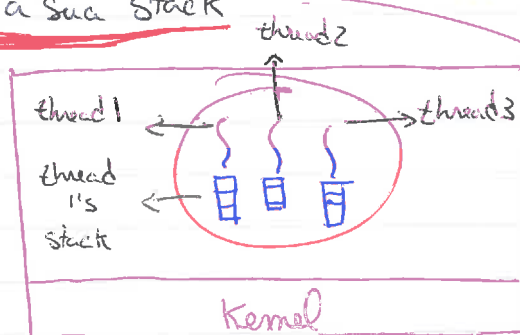 a sua stack
thread2
thread1
thread3
thread
1's
stack
Kernel